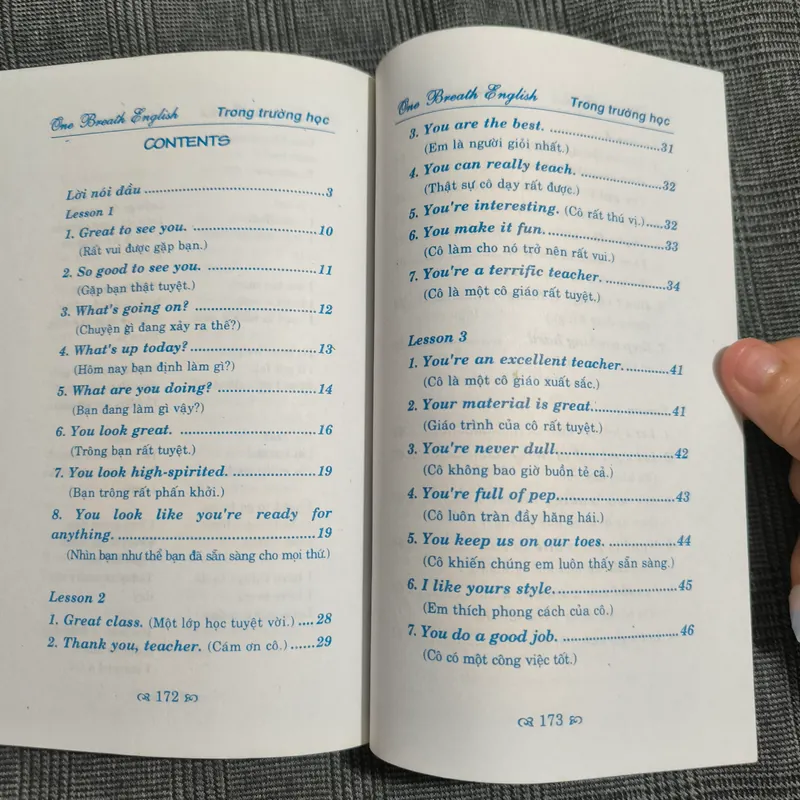 One Breath English Trong trường học
CONTENTS
Lời nói đầu ........ 3
Lesson 1
1. Great to see you. ........ 10
(Rất vui được gặp bạn.)
2. So good to see you. ........ 11
(Gặp bạn thật tuyệt.)
3. What's going on? ........ 12
(Chuyện gì đang xảy ra thế?)
4. What's up today? ........ 13
(Hôm nay bạn định làm gì?)
5. What are you doing? ........ 14
(Bạn đang làm gì vậy?)
6. You look great. ........ 16
(Trông bạn rất tuyệt.)
7. You look high-spirited. ........ 19
(Bạn trông rất phấn khởi.)
8. You look like you're ready for
anything. ........ 19
(Nhìn bạn như thể bạn đã sẵn sàng cho mọi thứ.)
Lesson 2
1. Great class. (Một lớp học tuyệt vời.) .... 28
2. Thank you, teacher. (Cám ơn cô.) ...... 29
172
One Breath English Trong trường học
3. You are the best. ........ 31
(Em là người giỏi nhất.)
4. You can really teach. ........ 32
(Thật sự cô dạy rất được.)
5. You're interesting. (Cô rất thú vị.) ..... 32
6. You make it fun. ........ 33
(Cô làm cho nó trở nên rất vui.)
7. You're a terrific teacher. ........ 34
(Cô là một cô giáo rất tuyệt.)
Lesson 3
1. You're an excellent teacher. ........ 41
(Cô là một cô giáo xuất sắc.)
2. Your material is great. ........ 41
(Giáo trình của cô rất tuyệt.)
3. You're never dull. ........ 42
(Cô không bao giờ buồn tẻ cả.)
4. You're full of pep. ........ 43
(Cô luôn tràn đầy hăng hái.)
5. You keep us on our toes. ........ 44
(Cô khiến chúng em luôn thấy sẵn sàng.)
6. I like yours style. ........ 45
(Em thích phong cách của cô.)
7. You do a good job. ........ 46
(Cô có một công việc tốt.)
173